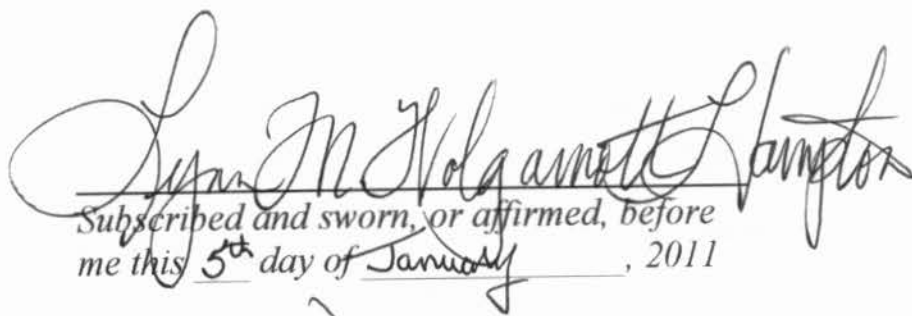 Lynn M Wolgamott Hampton
Subscribed and sworn, or affirmed, before
me this 5th day of January, 2011